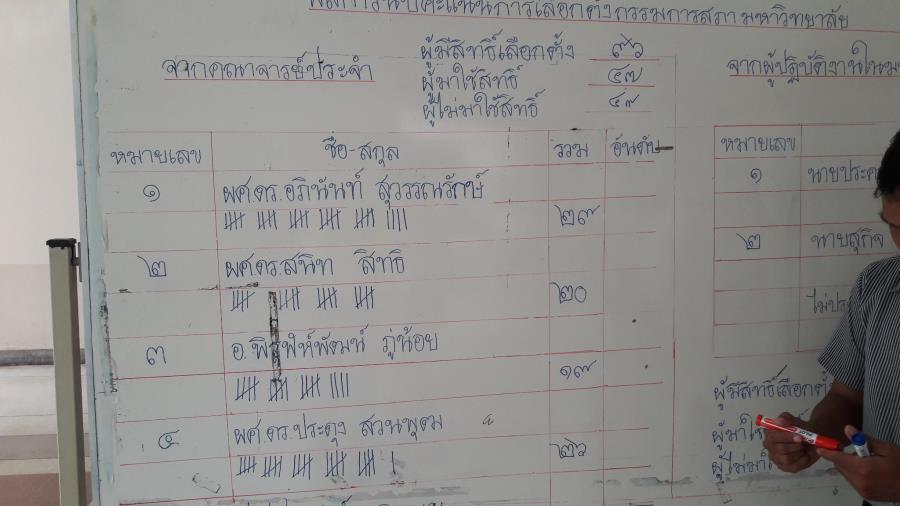 ผลการนับคะแนนการเลือกตั้งกรรมการสภามหาวิทยาลัย
จากคณาจารย์ประจำ
ผู้มีสิทธิ์เลือกตั้ง ๙๖
ผู้มาใช้สิทธิ์ ๔๗
ผู้ไม่มาใช้สิทธิ์ ๔๙
หมายเลข ชื่อ-สกุล รวม อันดับ
๑ ผศ.ดร.อภินันท์ สุวรรณรักษ์
๒๙
๒ ผศ.ดร.สนิท สิทธิ
๒๐
๓ อ. ภู่น้อย
๑๙
๔ ผศ.ดร.ประดุง สวนพุฒ
๒๖
จากผู้ปฏิบัติงานใน
หมายเลข
๑ นายประ
๒ นายสุกิจ
ไม่ประ
ผู้มีสิทธิ์เลือกตั้ง
ผู้มาใช้
ผู้ไม่มา